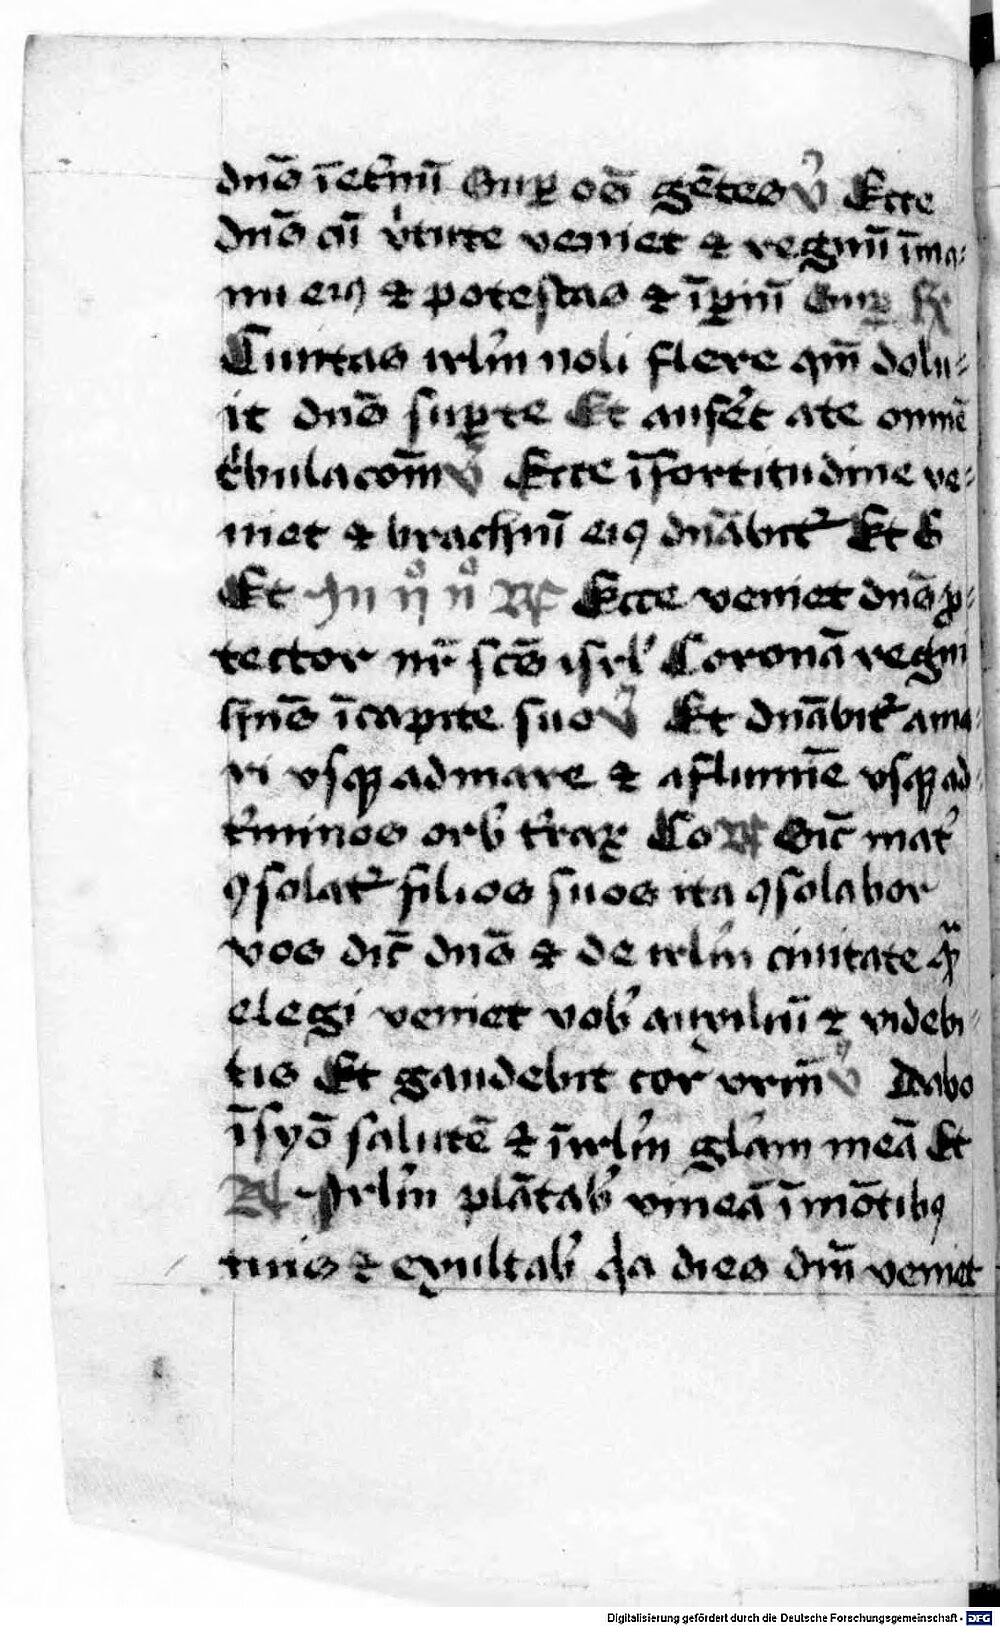 dn̄s īet̓nū Sup̲ oēs gētes v̓ Ecce
dn̄s cū v̓tute veniet ⁊ regnū īma-
nu eiꝯ ⁊ potestas ⁊ īp̲iū Sup̲ R̸
Ciuitas irl̓m noli flere qm̄ dolu-
it dn̄s sup̲ te Et aufer̓t ate omnē
t̓bulacōm v̓ Ecce īfortitudine ve-
niet ⁊ brachiū eiꝯ dn̄abit̓ Et S
Et In ij° n° R̸ Ecce veniet dn̄s p̱-
tector nr̄ scūs isrl̓ Coronā regni
hn̄s īcapite suo v̓ Et dn̄abit̓ ama-
ri vsqꝫ admare ⁊ aflumīe vsqꝫ ad
t̓minos orb̓ t̓raꝝ Co R̸ Sic̄ mat̓
ꝯsolat̓ filios suos ita ꝯsolabor
vos dic̄ dn̄s ⁊ de irl̓m ciuitate qᵃ̄
elegi veniet vob̓ auxiliū ⁊ videbi-
tis Et gaudebit cor vrm̄ v̓ Dabo
īsyō salutē ⁊ īirl̓m gl̓am meā Et
R̸ Irl̓m plātab̓ vineā īmōtibꝯ
tuis ⁊ exultab̓ qa dies dn̄i veniet
Digitalisierung gefördert durch die Deutsche Forschungsgemeinschaft - DFG